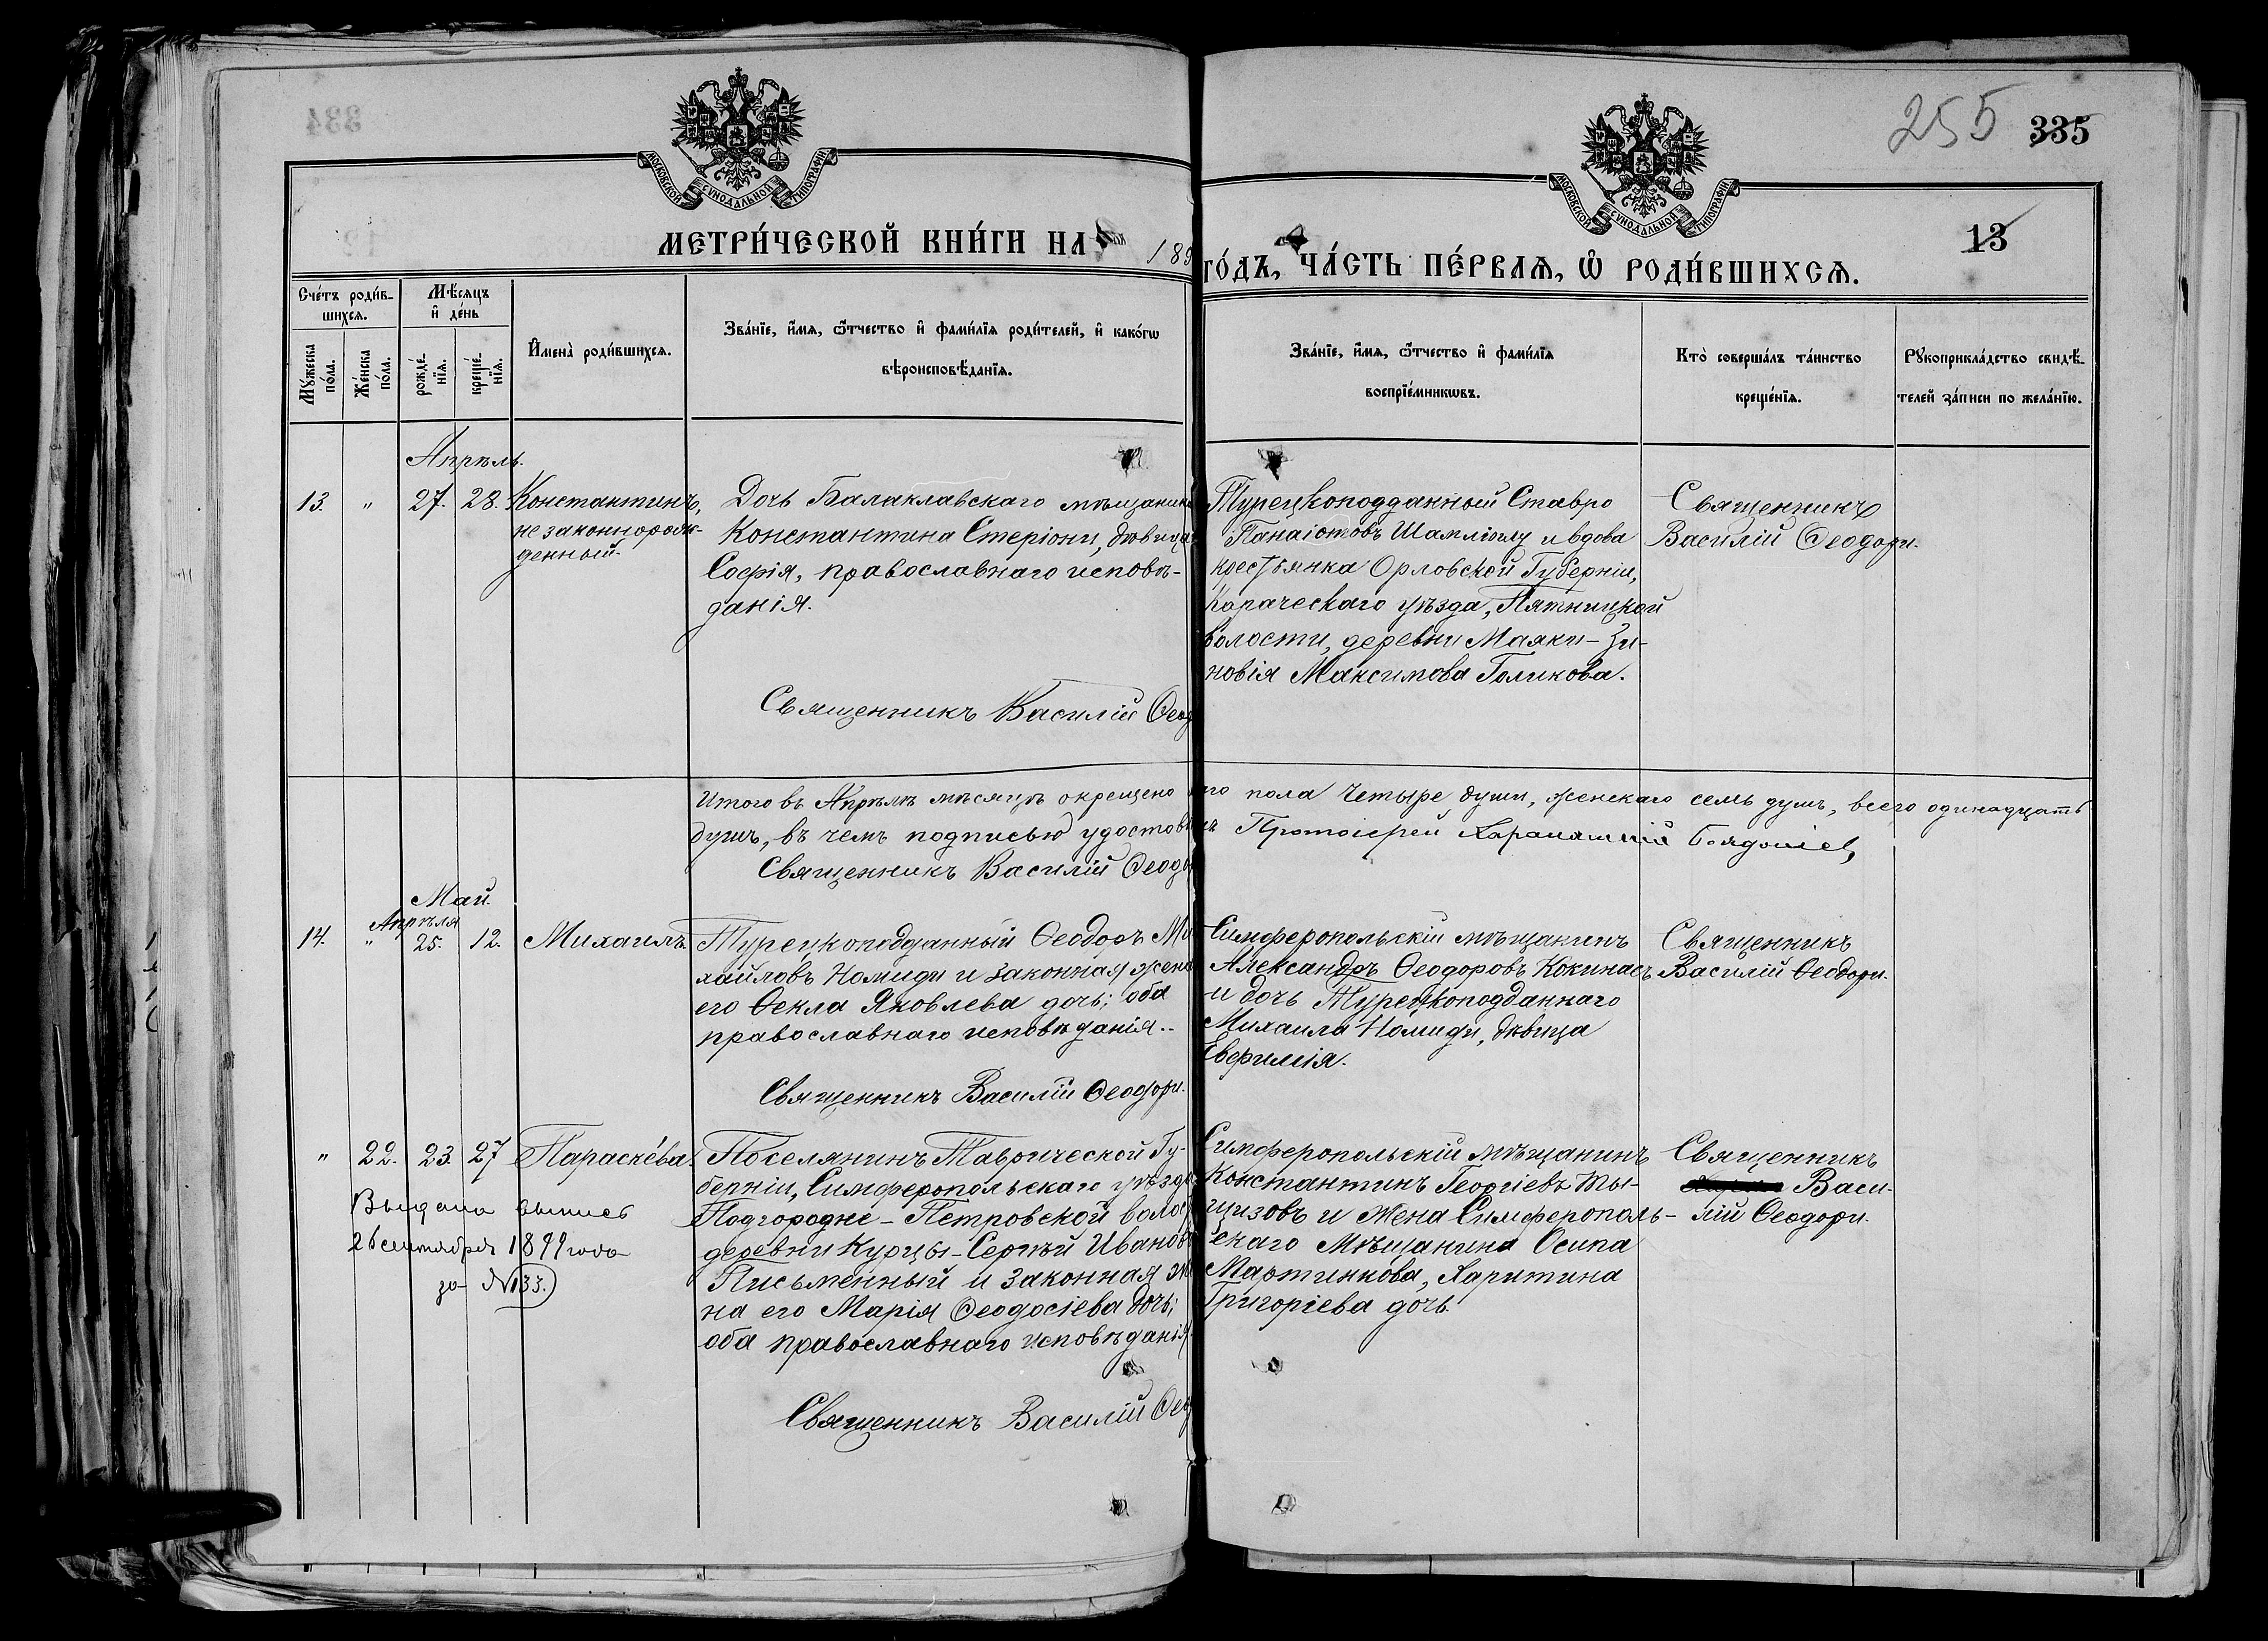 255 335
МОСКОВСКОЙ СѴНОДАЛЬНОЙ ТИПОГРАФІИ
МОСКОВСКОЙ СѴНОДАЛЬНОЙ ТИПОГРАФІИ
13
МЕТРИ́ЧЕСКОЙ КНИ́ГИ НА 189
ГО́ДЪ, ЧА́СТЬ ПЕ́РВАЯ, Ѡ РОДИ́ВШИХСЯ.
Сче́тъ роди́в-
шихся.
Мѣ́сяцъ
и де́нь
Мꙋ́жеска
по́ла.
Же́нска
по́ла.
рожде́-
нїя.
креще́-
нїя.
Имена̀ роди́вшихся.
Зва́нїе, и́мя, ѻ҆́тчество и фами́лїя роди́телей, и како́гѡ
вѣроисповѣ́данїя.
Зва́нїе, и́мя, ѻ҆́тчество и фами́лїя
воспрїе́мникѡвъ.
Кто̀ соверша́лъ та́инство
креще́нїя.
Рꙋкоприкла́дство свидѣ́-
телей за́писи по жела́нїю.
Апрѣль.
13. " 27. 28. Константинъ,
незаконнорож-
денный.
Дочь Балаклавскаго мѣщанина
Константина Стеріони, дѣвица
Софія, православнаго исповѣ-
данія.
Священникъ Василій Ѳеод
Турецкоподданный Ставро
Панаіотовъ Шамліоглу и вдова
крестьянка Орловской Губерніи,
Карачевскаго уѣзда, Пятницкой
волости, деревни Маяки - Зи-
новія Максимова Голикова.
Священникъ
Василій Ѳеодори.
Итого въ Апрѣлѣ мѣсяцѣ окрещено го пола четыре души, женскаго семь душъ, всего одинадцать
душъ, въ чемъ подписью удостовѣ Протоіерей
Священникъ Василій Ѳеодо
Май.
Апрѣля
14. " 25. 12. Михаилъ
Турецкоподданный Ѳеодоръ Ми
хайловъ Номиди и законная жена
его Ѳекла Яковлева дочь; оба
православнаго исповѣданія.
Священникъ Василій Ѳеодори.
Симферопольскій мѣщанинъ
Александръ Ѳеодоровъ Кокинасъ
и дочь Турецкоподданнаго
Михаила Номиди, дѣвица
Евфимія.
Священникъ
Василій Ѳеодори.
" 22. 23. 27 Параскева.
Выдана выпись
26 сентября 1899 года
за № 133.
Поселянинъ Таврической Гу-
берніи, Симферопольскаго уѣзда
Подгородне-Петровской волос
деревни Курцы - Сергѣй Иванов
Письменный и законная же
на его Марія Ѳеодосіева дочь;
оба православнаго исповѣданія.
Священникъ Василій Ѳео
Симферопольскій мѣщанинъ
Константинъ Георгіевъ Ты-
щизовъ и жена Симферополь-
скаго мѣщанина Осипа
Мартинкова, Харитина
Григоріева дочь
Священникъ
Васи-
лій Ѳеодори.